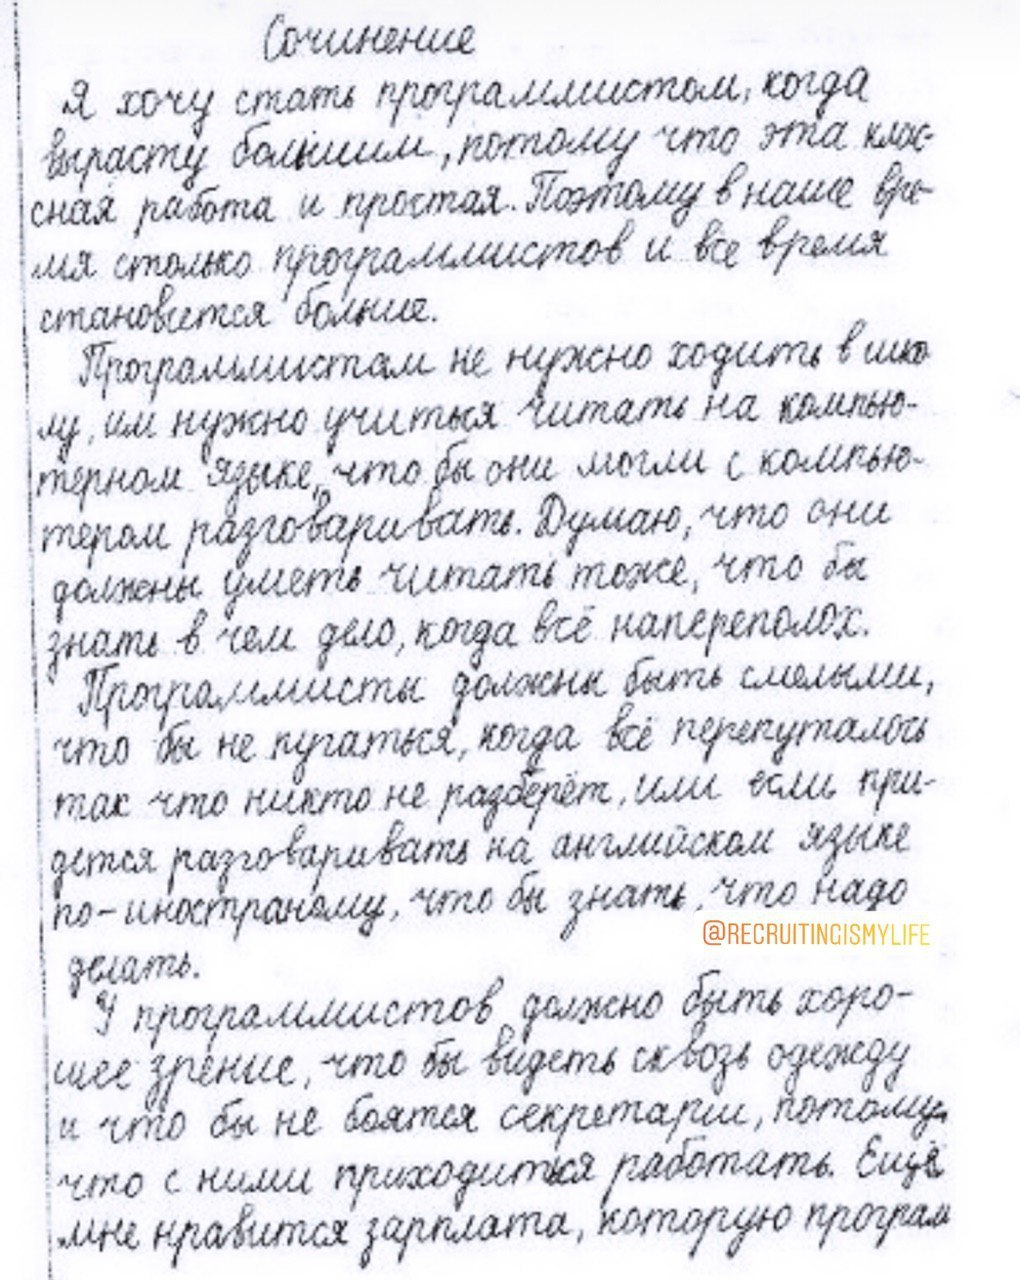 Сочинение
Я хочу стать программистом, когда
вырасту большим, потому что эта клас-
сная работа и простая. Поэтому в наше вре-
мя столько программистов и все время
становится больше.
Программистам не нужно ходить в шко
лу, им нужно учиться читать на компью-
терном языке, что бы они могли с компью-
тером разговаривать. Думаю, что они
должны уметь читать тоже, что бы
знать в чем дело, когда всё наперeполох.
Программисты должны быть смелыми,
что бы не пугаться, когда всё перепуталось
так что никто не разберёт, или если при-
дется разговаривать на английском языке
по-иностраному, что бы знать, что надо
@RECRUITINGISMYLIFE
делать.
У программистов должно быть хоро-
шее зрение, что бы видеть сквозь одежду
и что бы не боятся секретарш, потому,
что с ними приходиться работать. Ещё
мне нравится зарплата, которую програм